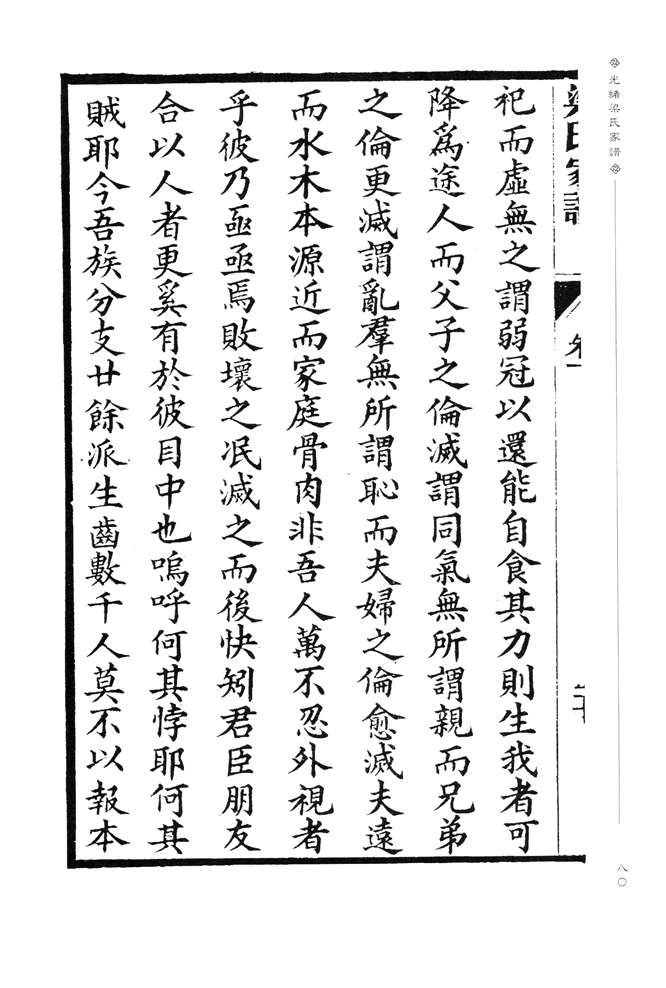 光緒梁氏家譜
八〇
梁氏家譜
卷一
二十
祀而虛無之謂弱冠以還能自食其力則生我者可
降爲途人而父子之倫滅謂同氣無所謂親而兄弟
之倫更滅謂亂羣無所謂恥而夫婦之倫愈滅夫遠
而水木本源近而家庭骨肉非吾人萬不忍外視者
乎彼乃亟亟焉敗壞之泯滅之而後快矧君臣朋友
合以人者更奚有於彼目中也嗚呼何其悖耶何其
賊耶今吾族分支廿餘派生齒數千人莫不以報本